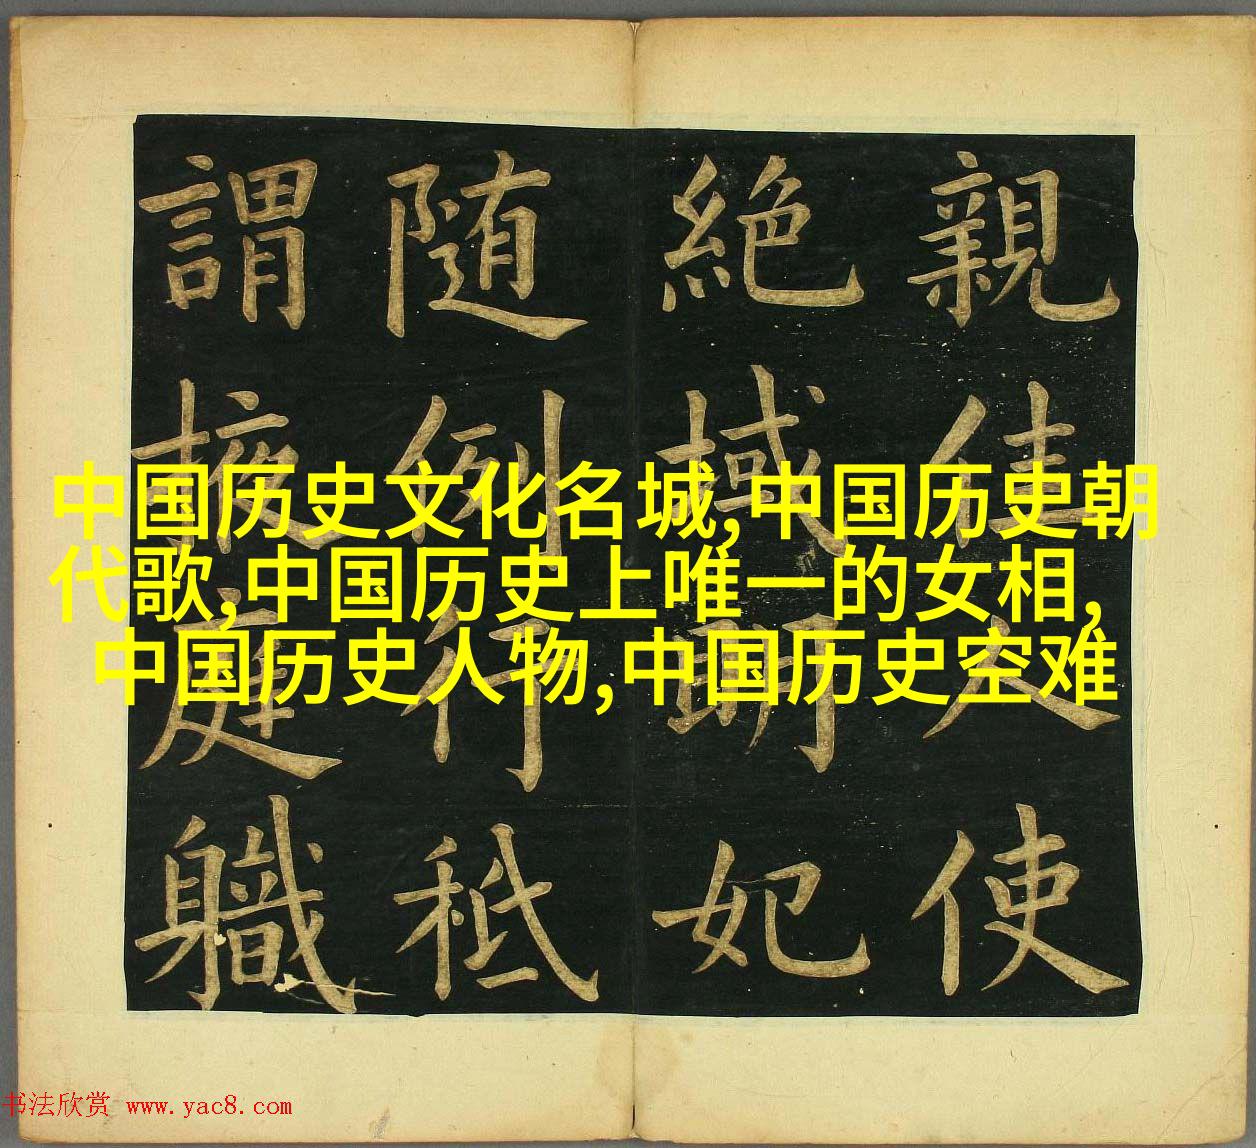 中国历史文化名城,中国历史朝
代歌,中国历史上唯一的女相,
中国历史人物,中国历史空难
親佳人使
絶域明妃
随例行秪
謂掖庭職
书法欣赏 www.yac8.com